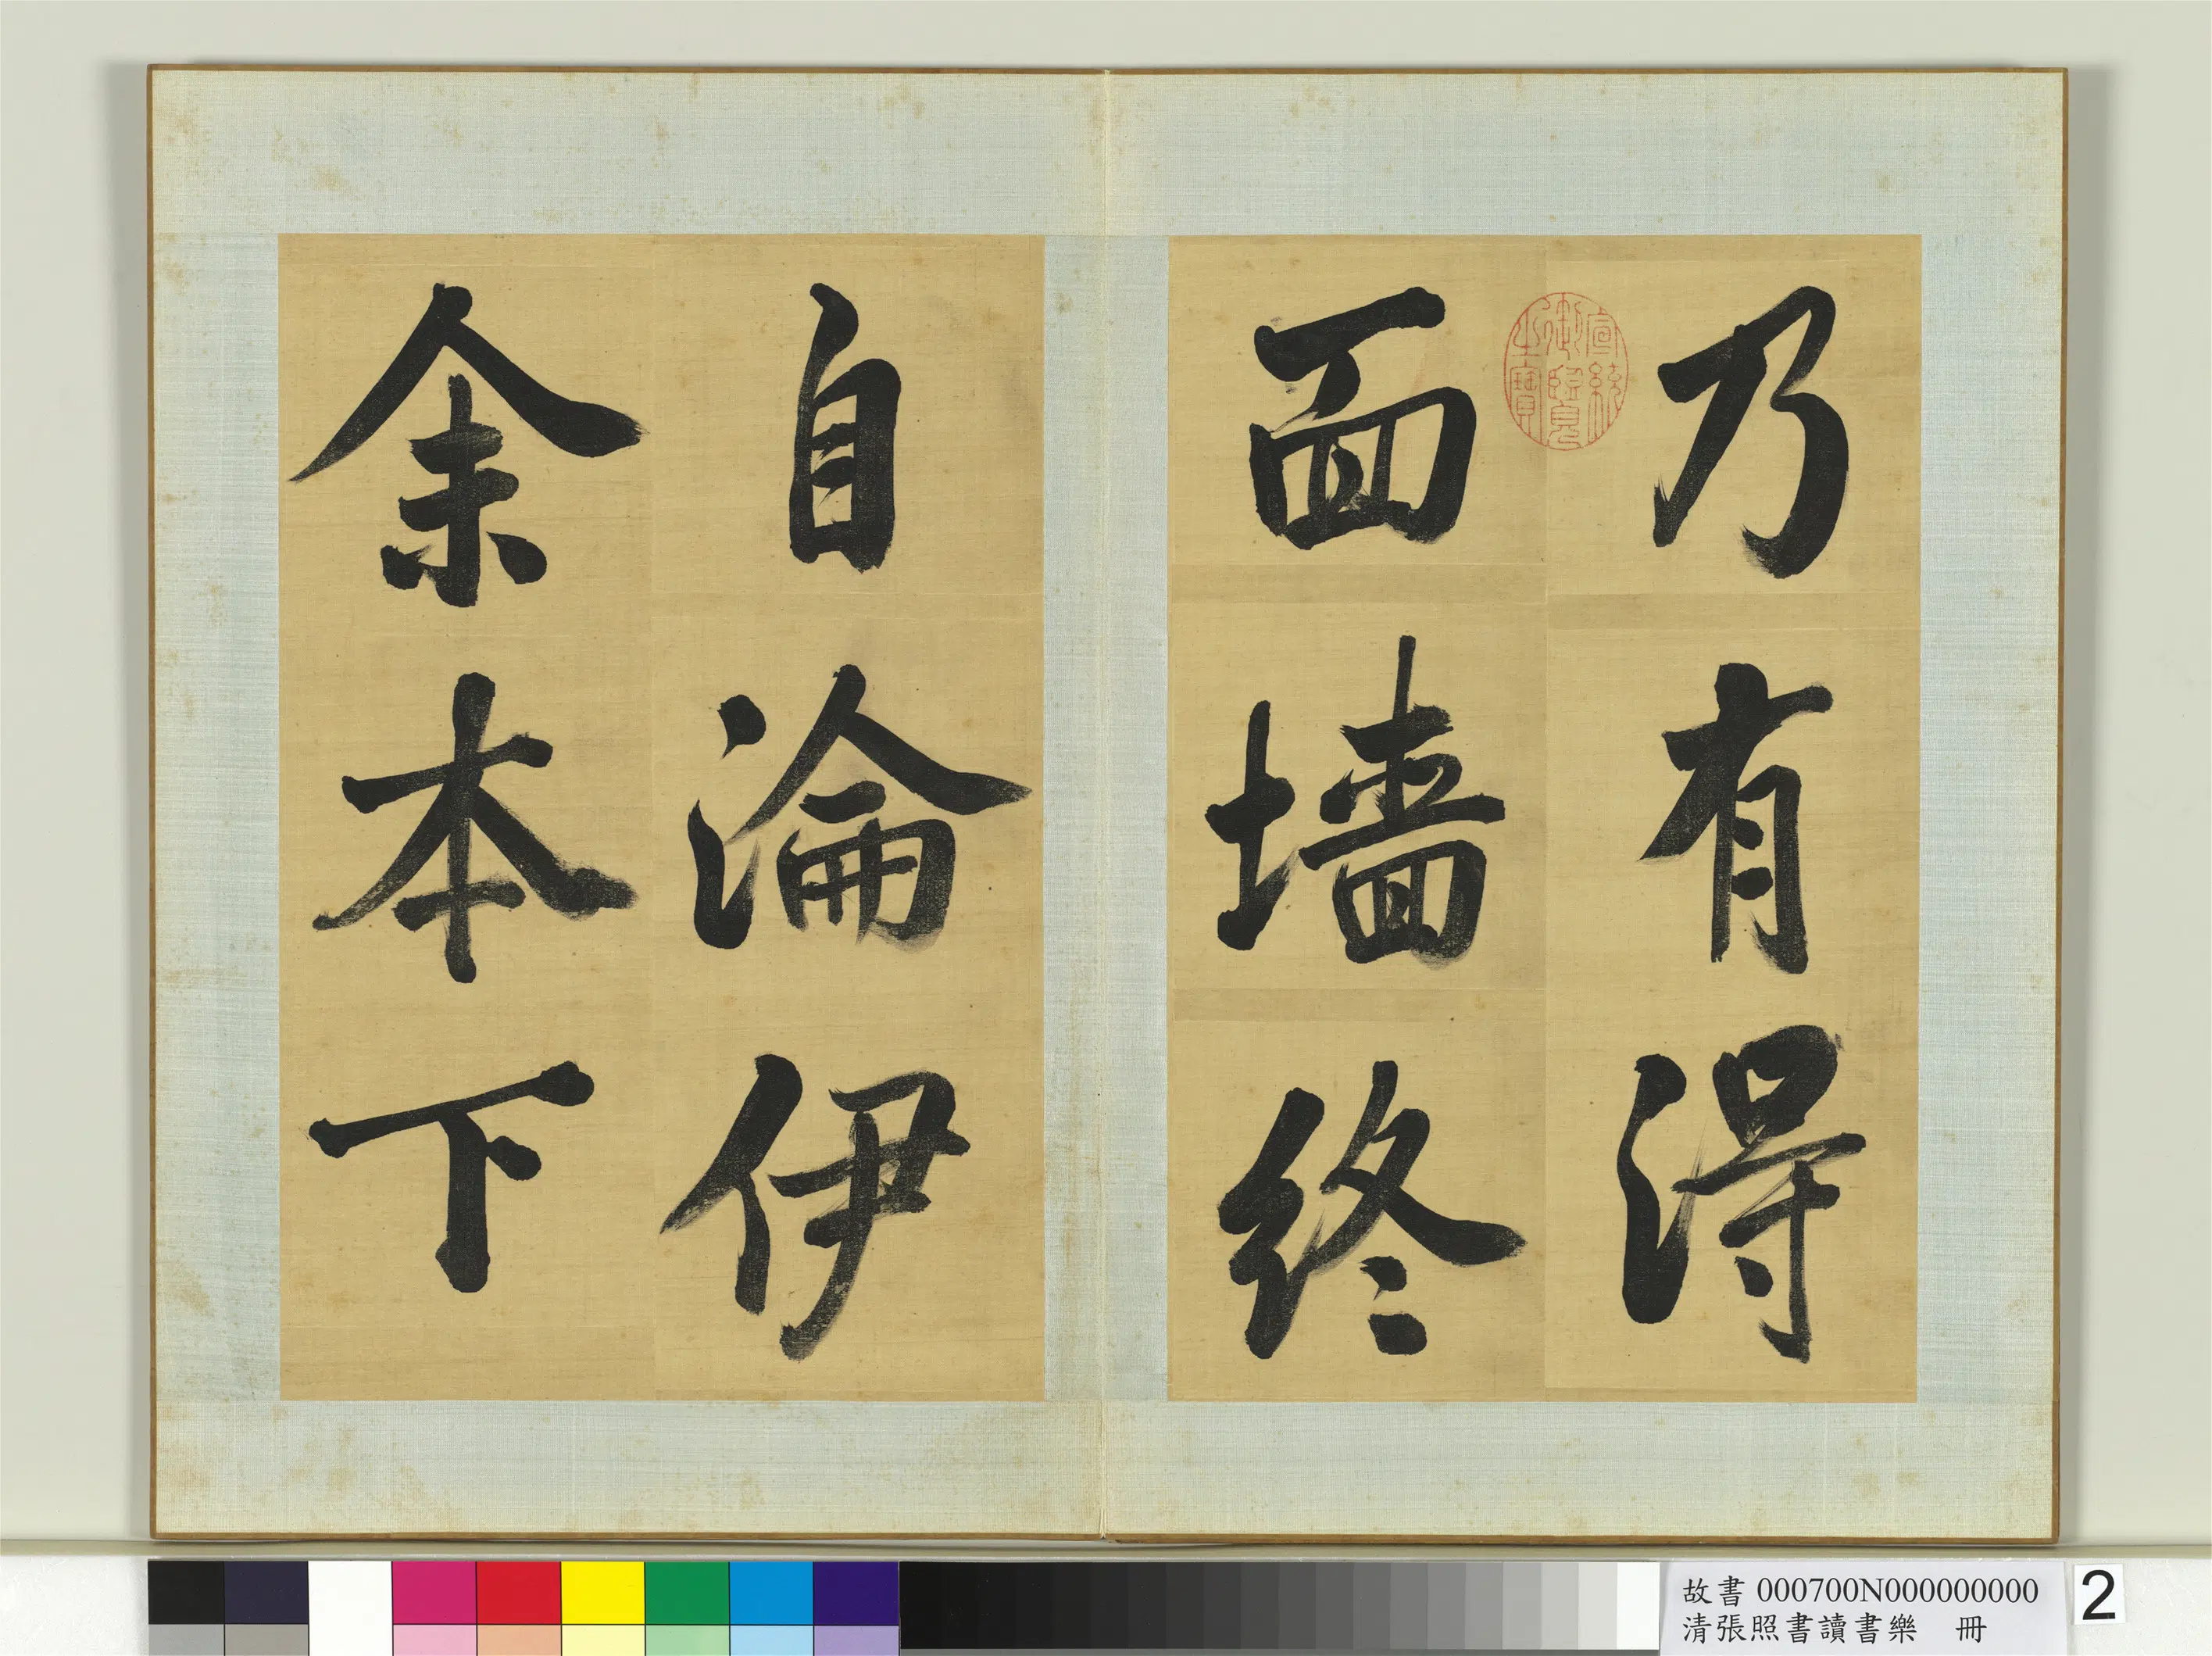 乃有得
面墙終
自淪伊
余本下
宣統
御覽
之寶
故書 000700N000000000
清張照書讀書樂 冊
2